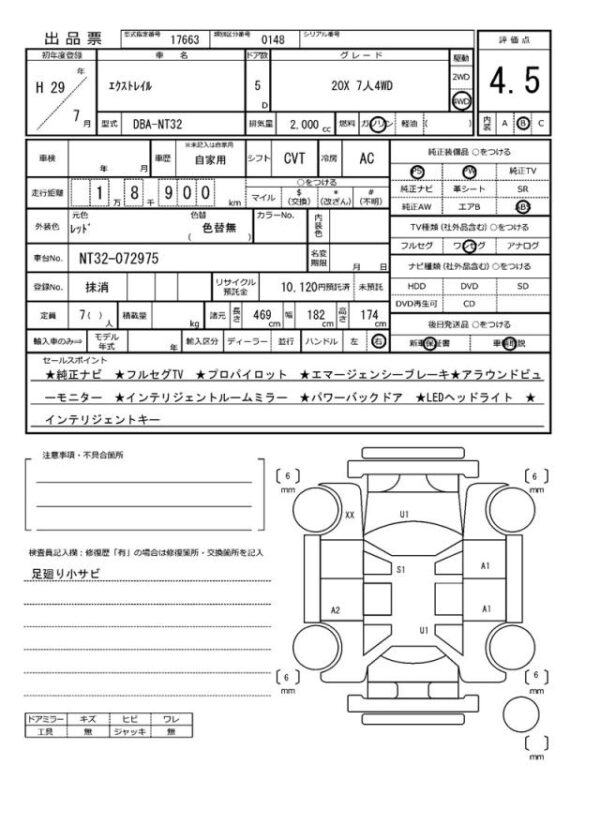 出品票 型式指定番号 17663 類別区分番号 0148 シリアル番号
評価点
4.5
内装 A B C
初年度登録 車名 ドア数 グレード 駆動
H 29 年 7 月 エクストレイル 5 D 20X 7人4WD 2WD 4WD
型式 DBA-NT32 排気量 2,000 cc 燃料 ガソリン 軽油 ( )
車検 年 月 車歴 ※未記入は自家用 自家用 シフト CVT 冷房 AC
走行距離 1 万 8 千 9 0 0 km ○をつける
マイル $ (交換) * (改ざん) # (不明)
外装色 元色 レッド 色替 ( 色替無 ) カラーNo. 内装色
車台No. NT32-072975 名変期限 月 日
登録No. 抹消 リサイクル預託金 10,120円預託済 未預託
定員 7( ) 人 積載量 kg 諸元 長さ 469 cm 幅 182 cm 高さ 174 cm
輸入車のみ⇒ モデル年式 年 輸入区分 ディーラー 並行 ハンドル 左 右
純正装備品 ○をつける
PS PW 純正TV
純正ナビ 革シート SR
純正AW エアB ABS
TV種類(社外品含む)○をつける
フルセグ ワンセグ アナログ
ナビ種類(社外品含む)○をつける
HDD DVD SD
DVD再生可 CD
後日発送品 ○をつける
新車保証書 車輌取説
セールスポイント
★純正ナビ ★フルセグTV ★プロパイロット ★エマージェンシーブレーキ★アラウンドビュ
ーモニター ★インテリジェントルームミラー ★パワーバックドア ★LEDヘッドライト ★
インテリジェントキー
注意事項・不具合箇所
検査員記入欄:修復歴「有」の場合は修復箇所・交換箇所を記入
足廻り小サビ
ドアミラー キズ ヒビ ワレ
工具 無 ジャッキ 無
( 6 ) mm
( 6 ) mm
XX
U1
S1
A1
A2
A1
U1
( 6 ) mm
( 6 ) mm
( ) mm